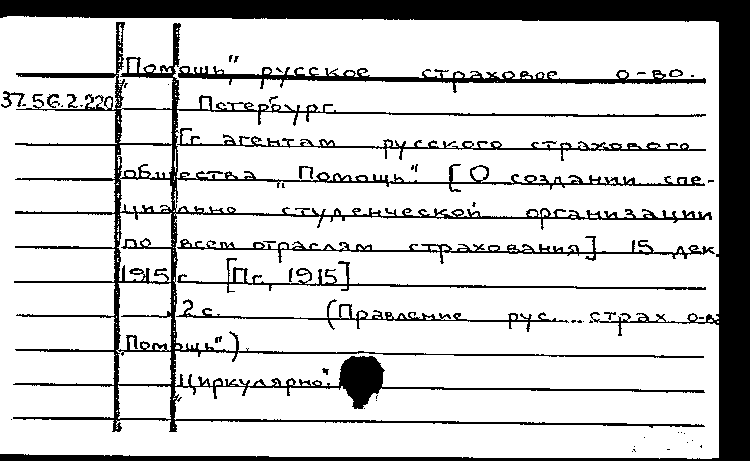 „Помощь", русское страховое о-во.
37.56.2.220 Петербург.
Гг. агентам русского страхового
общества „Помощь". [О создании спе-
циально студенческой организации
по всем отраслям страхования]. 15 дек.
1915 г. [Пг., 1915]
2 с. (Правление рус. страх. о-ва
„Помощь").
„Циркулярно".